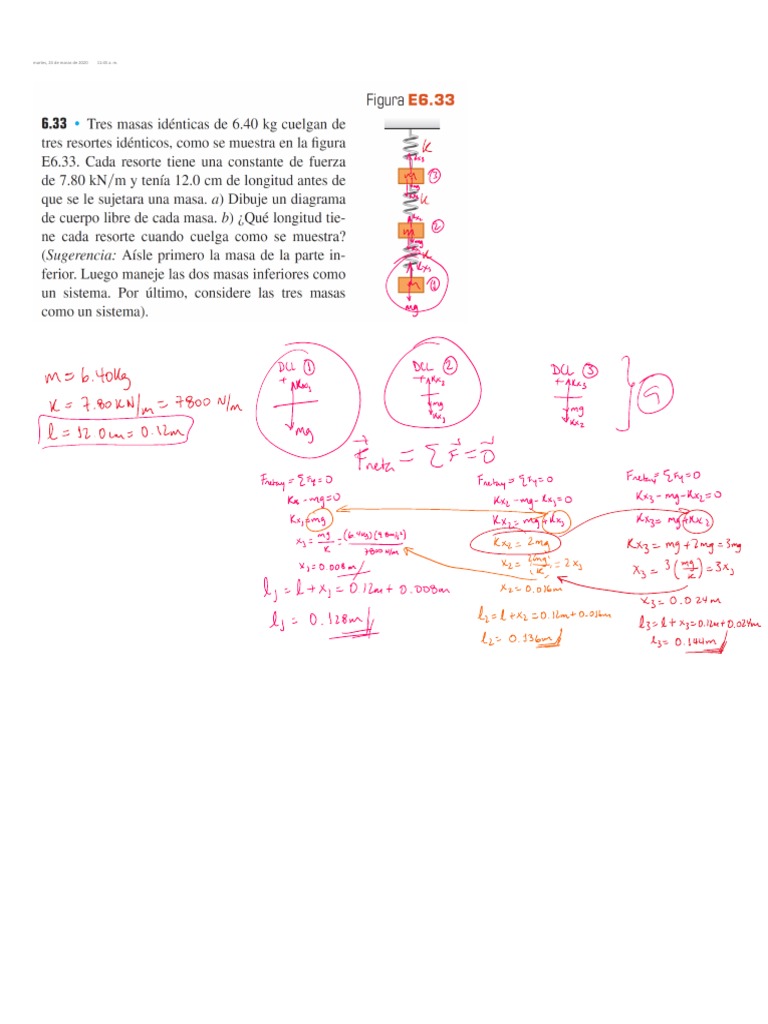 martes, 23 de marzo de 2020
Figura E6.33
6.33 • Tres masas idénticas de 6.40 kg cuelgan de
tres resortes idénticos, como se muestra en la figura
E6.33. Cada resorte tiene una constante de fuerza
de 7.80 kN/m y tenía 12.0 cm de longitud antes de
que se le sujetara una masa. a) Dibuje un diagrama
de cuerpo libre de cada masa. b) ¿Qué longitud tie-
ne cada resorte cuando cuelga como se muestra?
(Sugerencia: Aísle primero la masa de la parte in-
ferior. Luego maneje las dos masas inferiores como
un sistema. Por último, considere las tres masas
como un sistema).
K
m
3
K
m
2
K
m
1
mg
m = 6.40Kg
K = 7.80KN/m = 7800 N/m
l = 12.0cm = 0.12m
DCL 1
+ Kx1
mg
DCL 2
+ Kx2
mg
Kx1
DCL 3
+ Kx3
mg
Kx2
G
Fneta = Σ F = 0
Fnetay = ΣFy = 0
Kx1 - mg = 0
Kx1 = mg
x1 = mg/K = (6.4kg)(9.8m/s²)/7800N/m
x1 = 0.008m
l1 = l + x1 = 0.12m + 0.008m
l1 = 0.128m
Fnetay = ΣFy = 0
Kx2 - mg - Kx1 = 0
Kx2 = mg + Kx1
Kx2 = 2mg
x2 = 2mg/K = 2x1
x2 = 0.016m
l2 = l + x2 = 0.12m + 0.016m
l2 = 0.136m
Fnetay = ΣFy = 0
Kx3 - mg - Kx2 = 0
Kx3 = mg + Kx2
Kx3 = mg + 2mg = 3mg
x3 = 3(mg/K) = 3x1
x3 = 0.024m
l3 = l + x3 = 0.12m + 0.024m
l3 = 0.144m